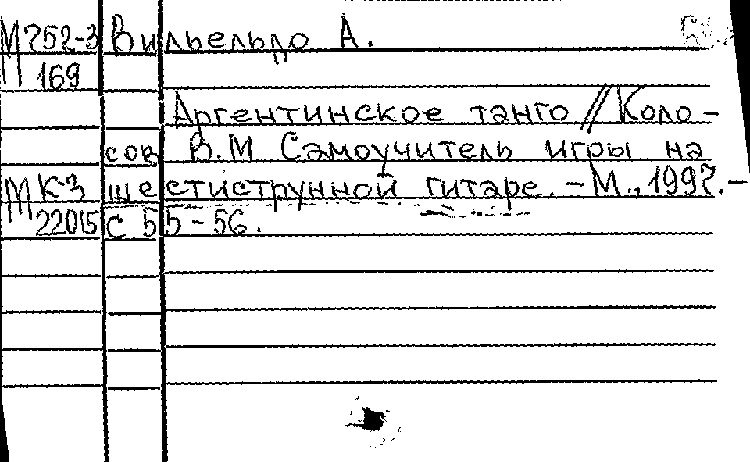 М752-3 Вильельдо А.
169
Аргентинское танго // Коло-
сов В.М Самоучитель игры на
МКЗ шестиструнной гитаре. – М., 1997. –
22015 с 55-56.